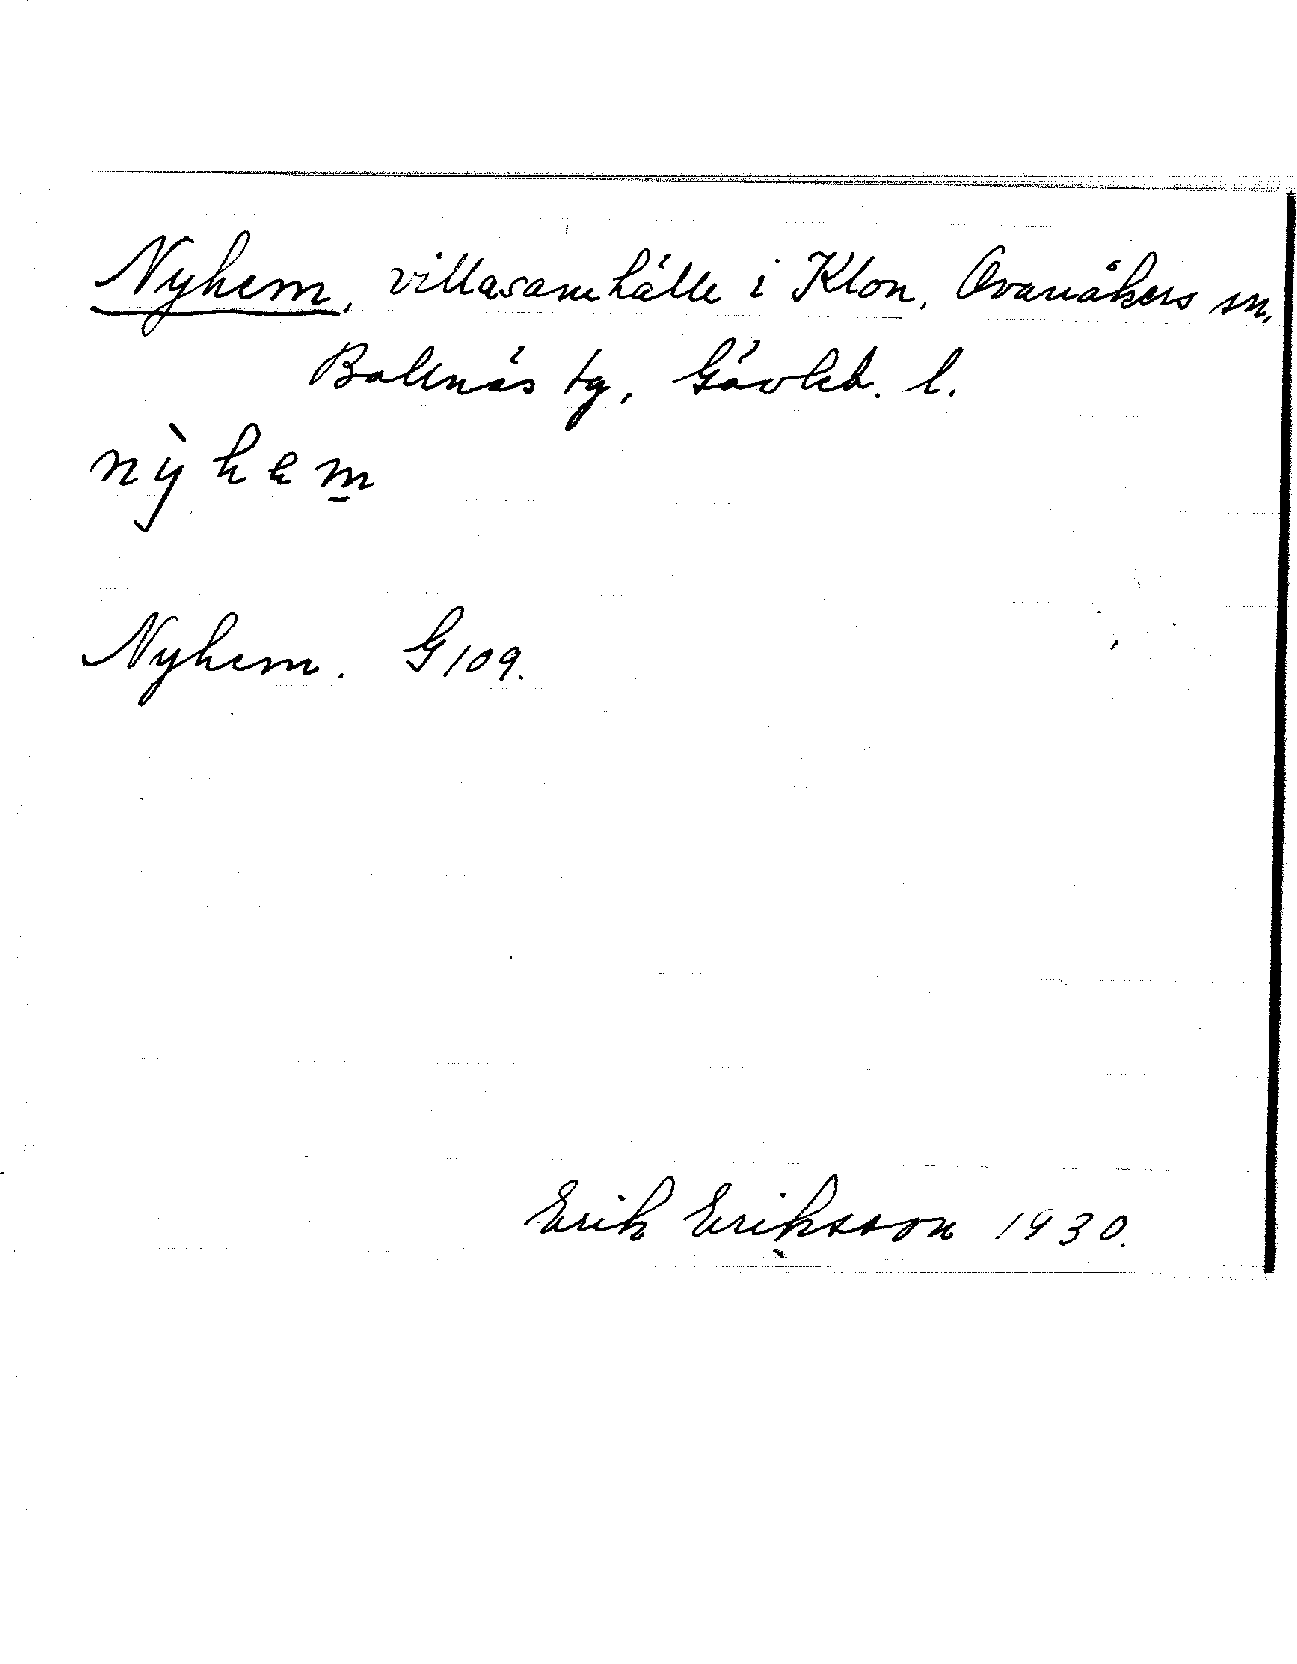 Nyhem, villasamhälle i Klon, Ovanåkers sn,
Bollnäs tg, Gävleb. l.
nỳhem̲
Nyhem. G 109.
Erik Eriksson 1930.